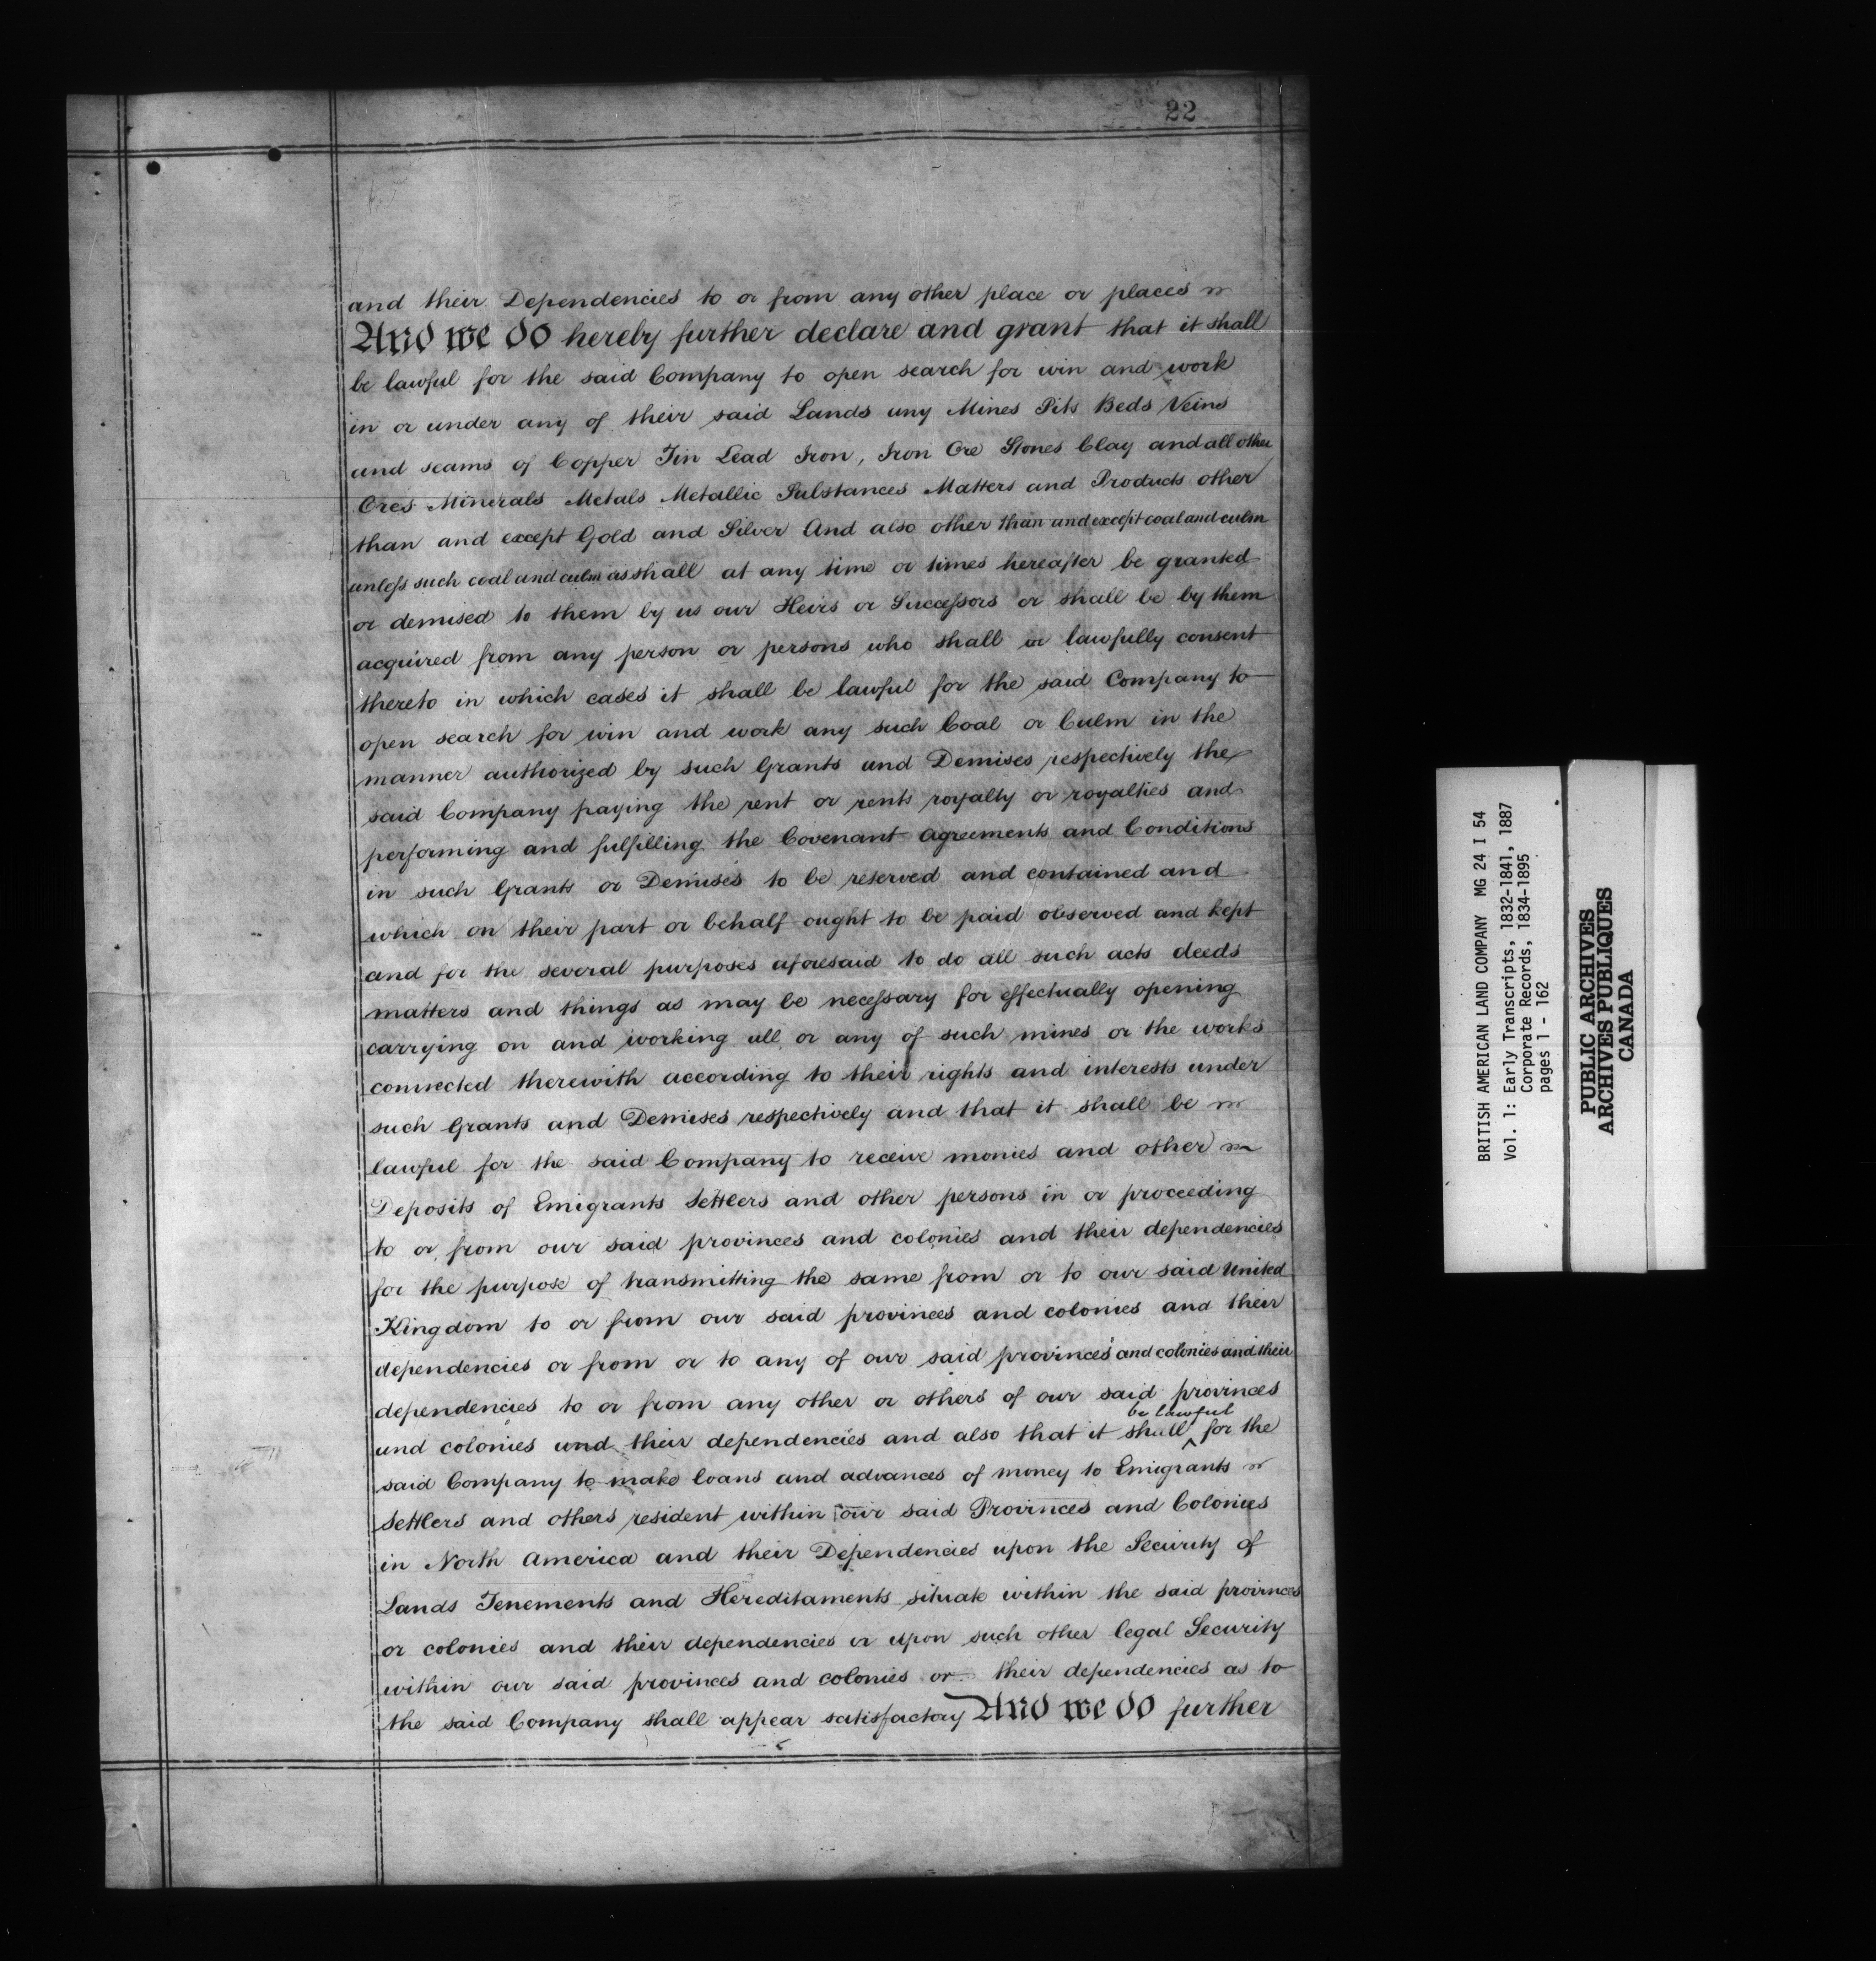 22
and their Dependencies to or from any other place or places
And we do hereby further declare and grant that it shall
be lawful for the said Company to open search for win and work
in or under any of their said Lands any Mines Pits Beds Veins
and seams of Copper Tin Lead Iron, Iron Ore Stones Clay and all other
Ores Minerals Metals Metallic Substances Matters and Products other
than and except Gold and Silver And also other than and except coal and culm
unless such coal and culm as shall at any time or times hereafter be granted
or demised to them by us our Heirs or Successors or shall be by them
acquired from any person or persons who shall or lawfully consent
thereto in which cases it shall be lawful for the said Company to
open search for win and work any such Coal or Culm in the
manner authorized by such Grants and Demises respectively the
said Company paying the rent or rents royalty or royalties and
performing and fulfilling the Covenant Agreements and Conditions
in such Grants or Demises to be reserved and contained and
which on their part or behalf ought to be paid observed and kept
and for the several purposes aforesaid to do all such acts deeds
matters and things as may be necessary for effectually opening
carrying on and working all or any of such mines or the works
connected therewith according to their rights and interests under
such Grants and Demises respectively and that it shall be
lawful for the said Company to receive monies and other
Deposits of Emigrants Settlers and other persons in or proceeding
to or from our said provinces and colonies and their dependencies
for the purpose of transmitting the same from or to our said United
Kingdom to or from our said provinces and colonies and their
dependencies or from or to any of our said provinces and colonies and their
dependencies to or from any other or others of our said provinces
be lawful
and colonies and their dependencies and also that it shall ^ for the
said Company to make loans and advances of money to Emigrants
Settlers and others resident within our said Provinces and Colonies
in North America and their Dependencies upon the Security of
Lands Tenements and Hereditaments situate within the said provinces
or colonies and their dependencies or upon such other legal Security
within our said provinces and colonies or their dependencies as to
the said Company shall appear satisfactory And we do further
BRITISH AMERICAN LAND COMPANY MG 24 I 54
Vol. 1: Early Transcripts, 1832-1841, 1887
Corporate Records, 1834-1895
pages 1 - 162
PUBLIC ARCHIVES
ARCHIVES PUBLIQUES
CANADA